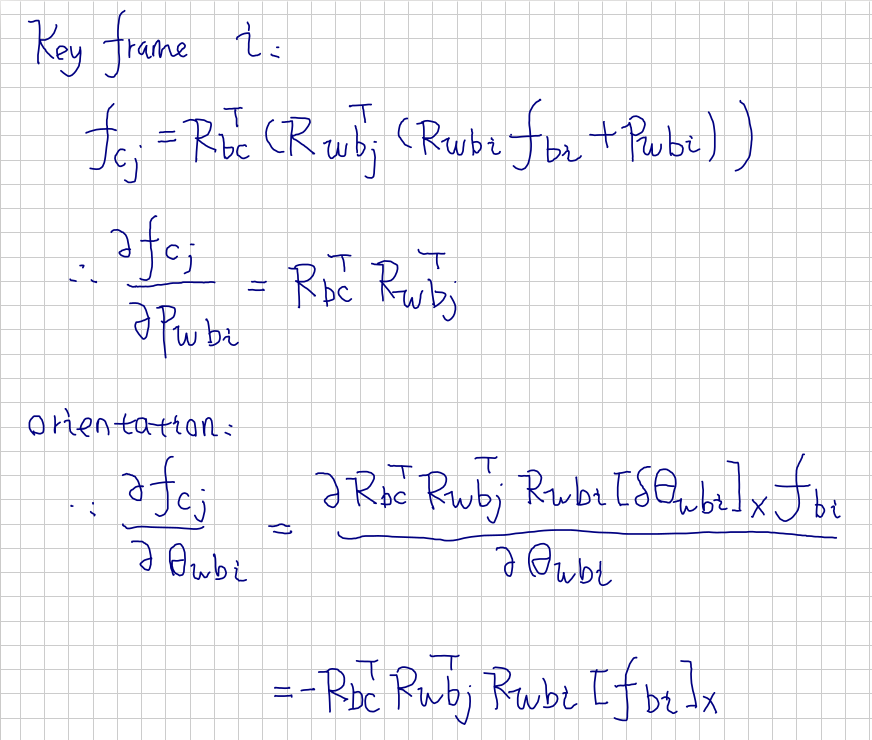 Key frame i:
f_{cj} = R_{bc}^T (R_{wbj}^T (R_{wbi} f_{bi} + P_{wbi}))
∴ ∂f_{cj} / ∂P_{wbi} = R_{bc}^T R_{wbj}^T
orientation:
∵ ∂f_{cj} / ∂θ_{wbi} = ∂R_{bc}^T R_{wbj}^T R_{wbi} [δθ_{wbi}]_× f_{bi} / ∂θ_{wbi}
= -R_{bc}^T R_{wbj}^T R_{wbi} [f_{bi}]_×